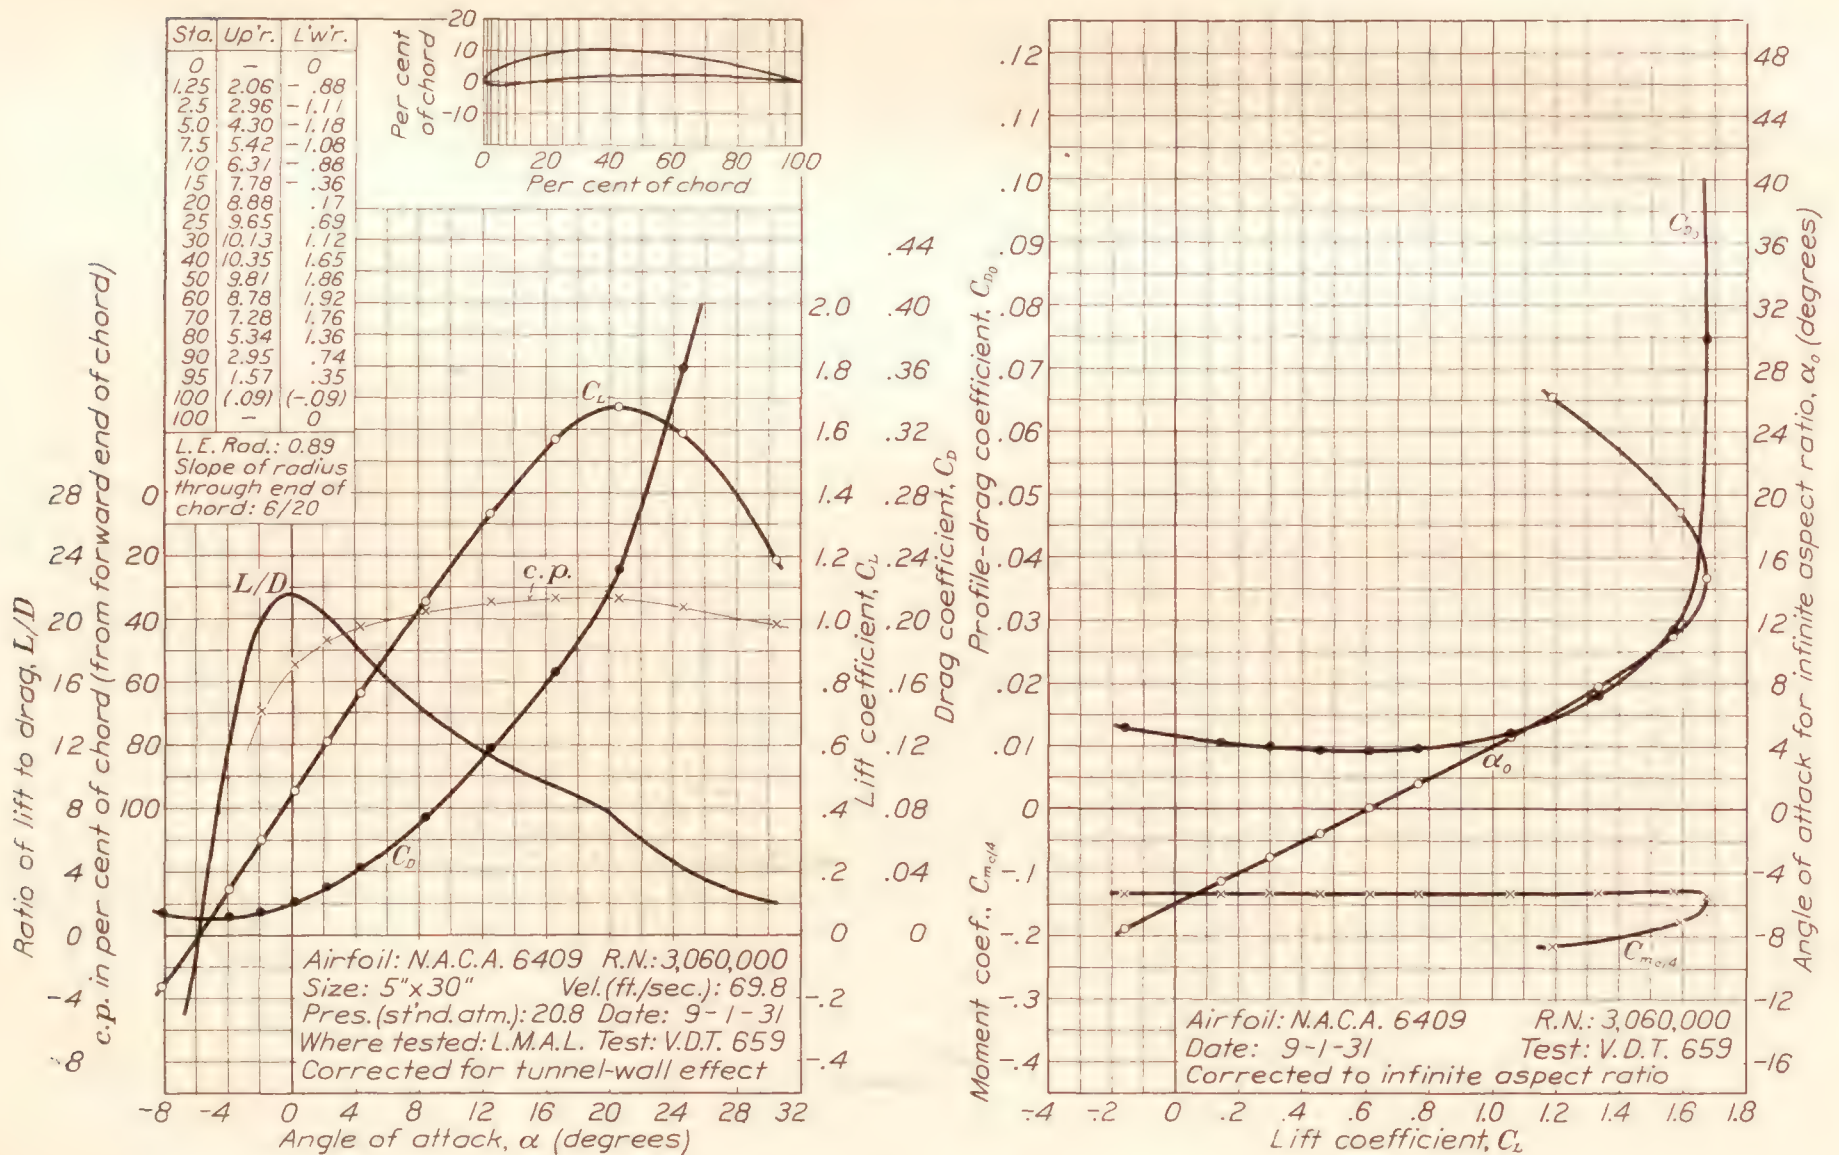 Sta. Up'r. L'w'r.
0 – 0
1.25 2.06 -.88
2.5 2.96 -1.11
5.0 4.30 -1.18
7.5 5.42 -1.08
10 6.31 -.88
15 7.78 -.36
20 8.88 .17
25 9.65 .69
30 10.13 1.12
40 10.35 1.65
50 9.81 1.86
60 8.78 1.92
70 7.28 1.76
80 5.34 1.36
90 2.95 .74
95 1.57 .35
100 (.09) (-.09)
100 – 0
L.E. Rad.: 0.89
Slope of radius
through end of
chord: 6/20
Per cent
of chord
20
10
0
-10
0 20 40 60 80 100
Per cent of chord
Ratio of lift to drag, L/D
28
24
20
16
12
8
4
0
-4
-8
c.p. in per cent of chord (from forward end of chord)
0
20
40
60
80
100
L/D
c.p.
C_L
C_D
2.0
1.8
1.6
1.4
1.2
1.0
.8
.6
.4
.2
0
-.2
-.4
Lift coefficient, C_L
.44
.40
.36
.32
.28
.24
.20
.16
.12
.08
.04
0
Drag coefficient, C_D
Airfoil: N.A.C.A. 6409 R.N.: 3,060,000
Size: 5"x30" Vel.(ft./sec.): 69.8
Pres.(st'nd.atm.): 20.8 Date: 9-1-31
Where tested: L.M.A.L. Test: V.D.T. 659
Corrected for tunnel-wall effect
-8 -4 0 4 8 12 16 20 24 28 32
Angle of attack, α (degrees)
Profile-drag coefficient, C_D0
.12
.11
.10
.09
.08
.07
.06
.05
.04
.03
.02
.01
0
Moment coef., C_mc/4
-.1
-.2
-.3
-.4
C_D0
α_0
C_mc/4
48
44
40
36
32
28
24
20
16
12
8
4
0
-4
-8
-12
-16
Angle of attack for infinite aspect ratio, α_0 (degrees)
Airfoil: N.A.C.A. 6409 R.N.: 3,060,000
Date: 9-1-31 Test: V.D.T. 659
Corrected to infinite aspect ratio
-.4 -.2 0 .2 .4 .6 .8 1.0 1.2 1.4 1.6 1.8
Lift coefficient, C_L